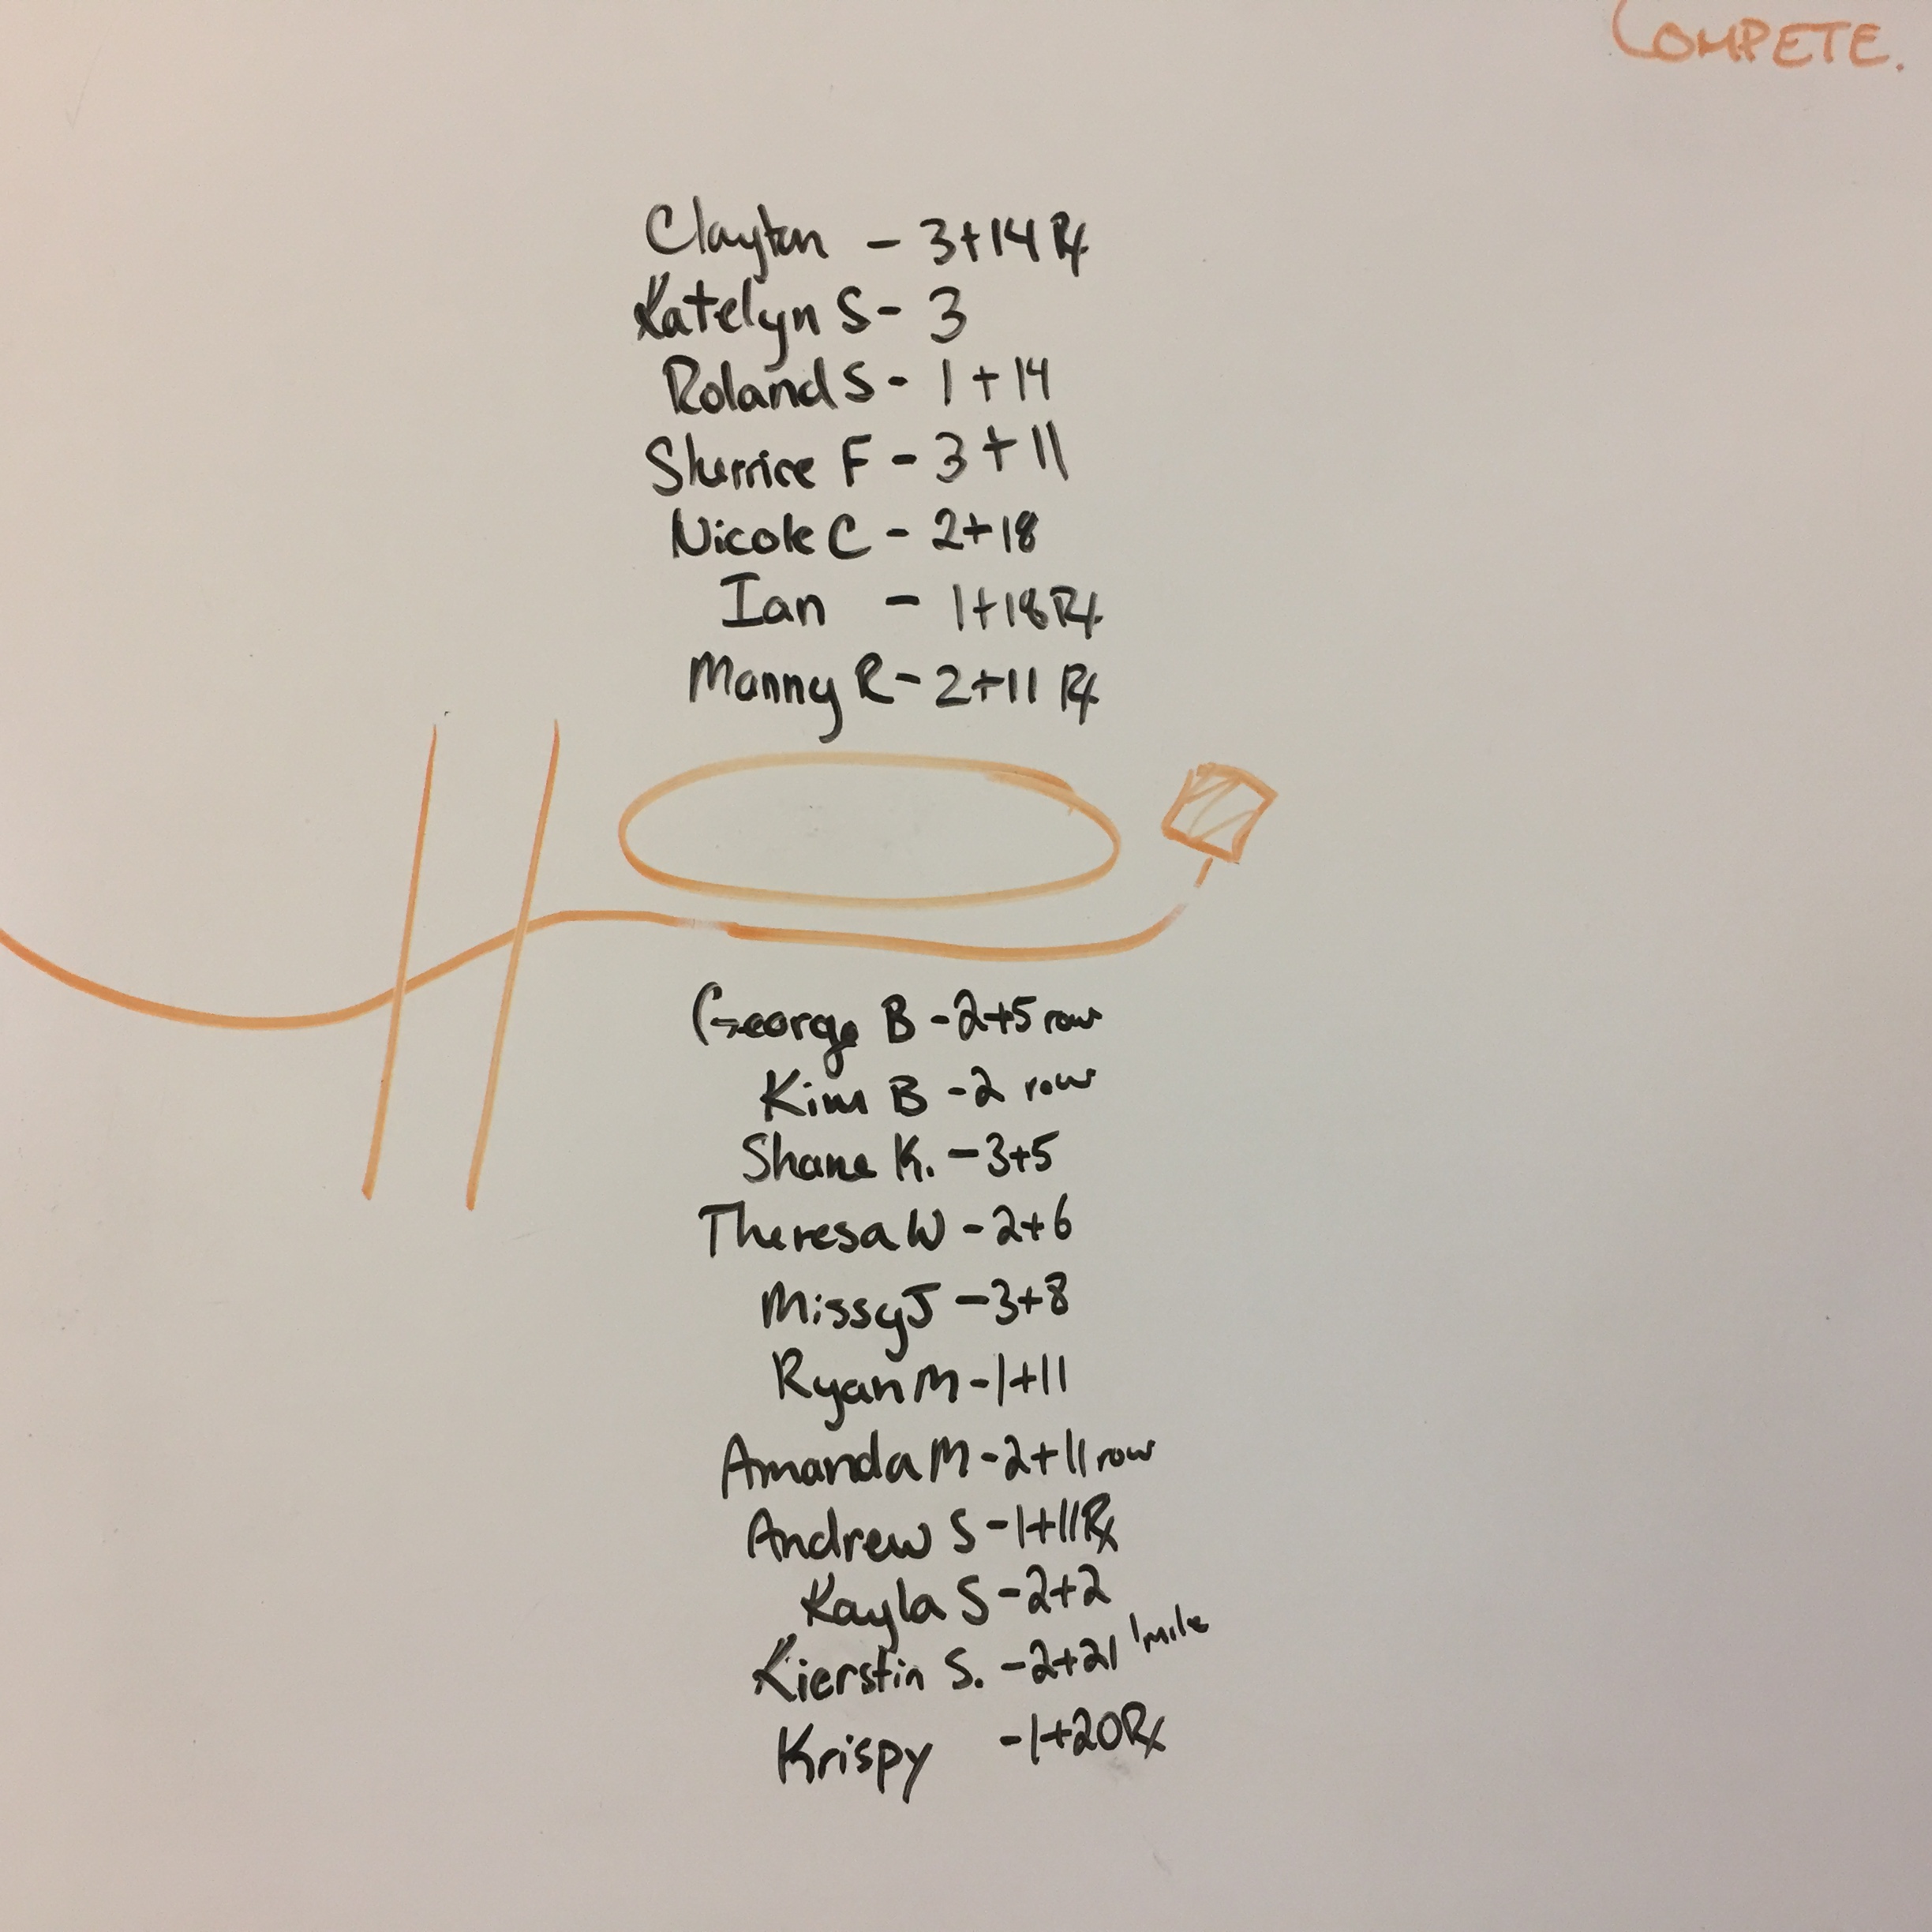 COMPETE.
Clayton - 3+14 Rx
Katelyn S - 3
Roland S - 1 + 14
Sherrice F - 3 + 11
Nicole C - 2+18
Ian - 1+18 Rx
Manny R - 2+11 Rx
George B - 2+5 row
Kim B - 2 row
Shane K. - 3+5
Theresa W - 2+6
Missy J - 3+8
Ryan M - 1+11
Amanda M - 2+11 row
Andrew S - 1+11 Rx
Kayla S - 2+2
Kierstin S. - 2+21 1mile
Krispy - 1+20 Rx